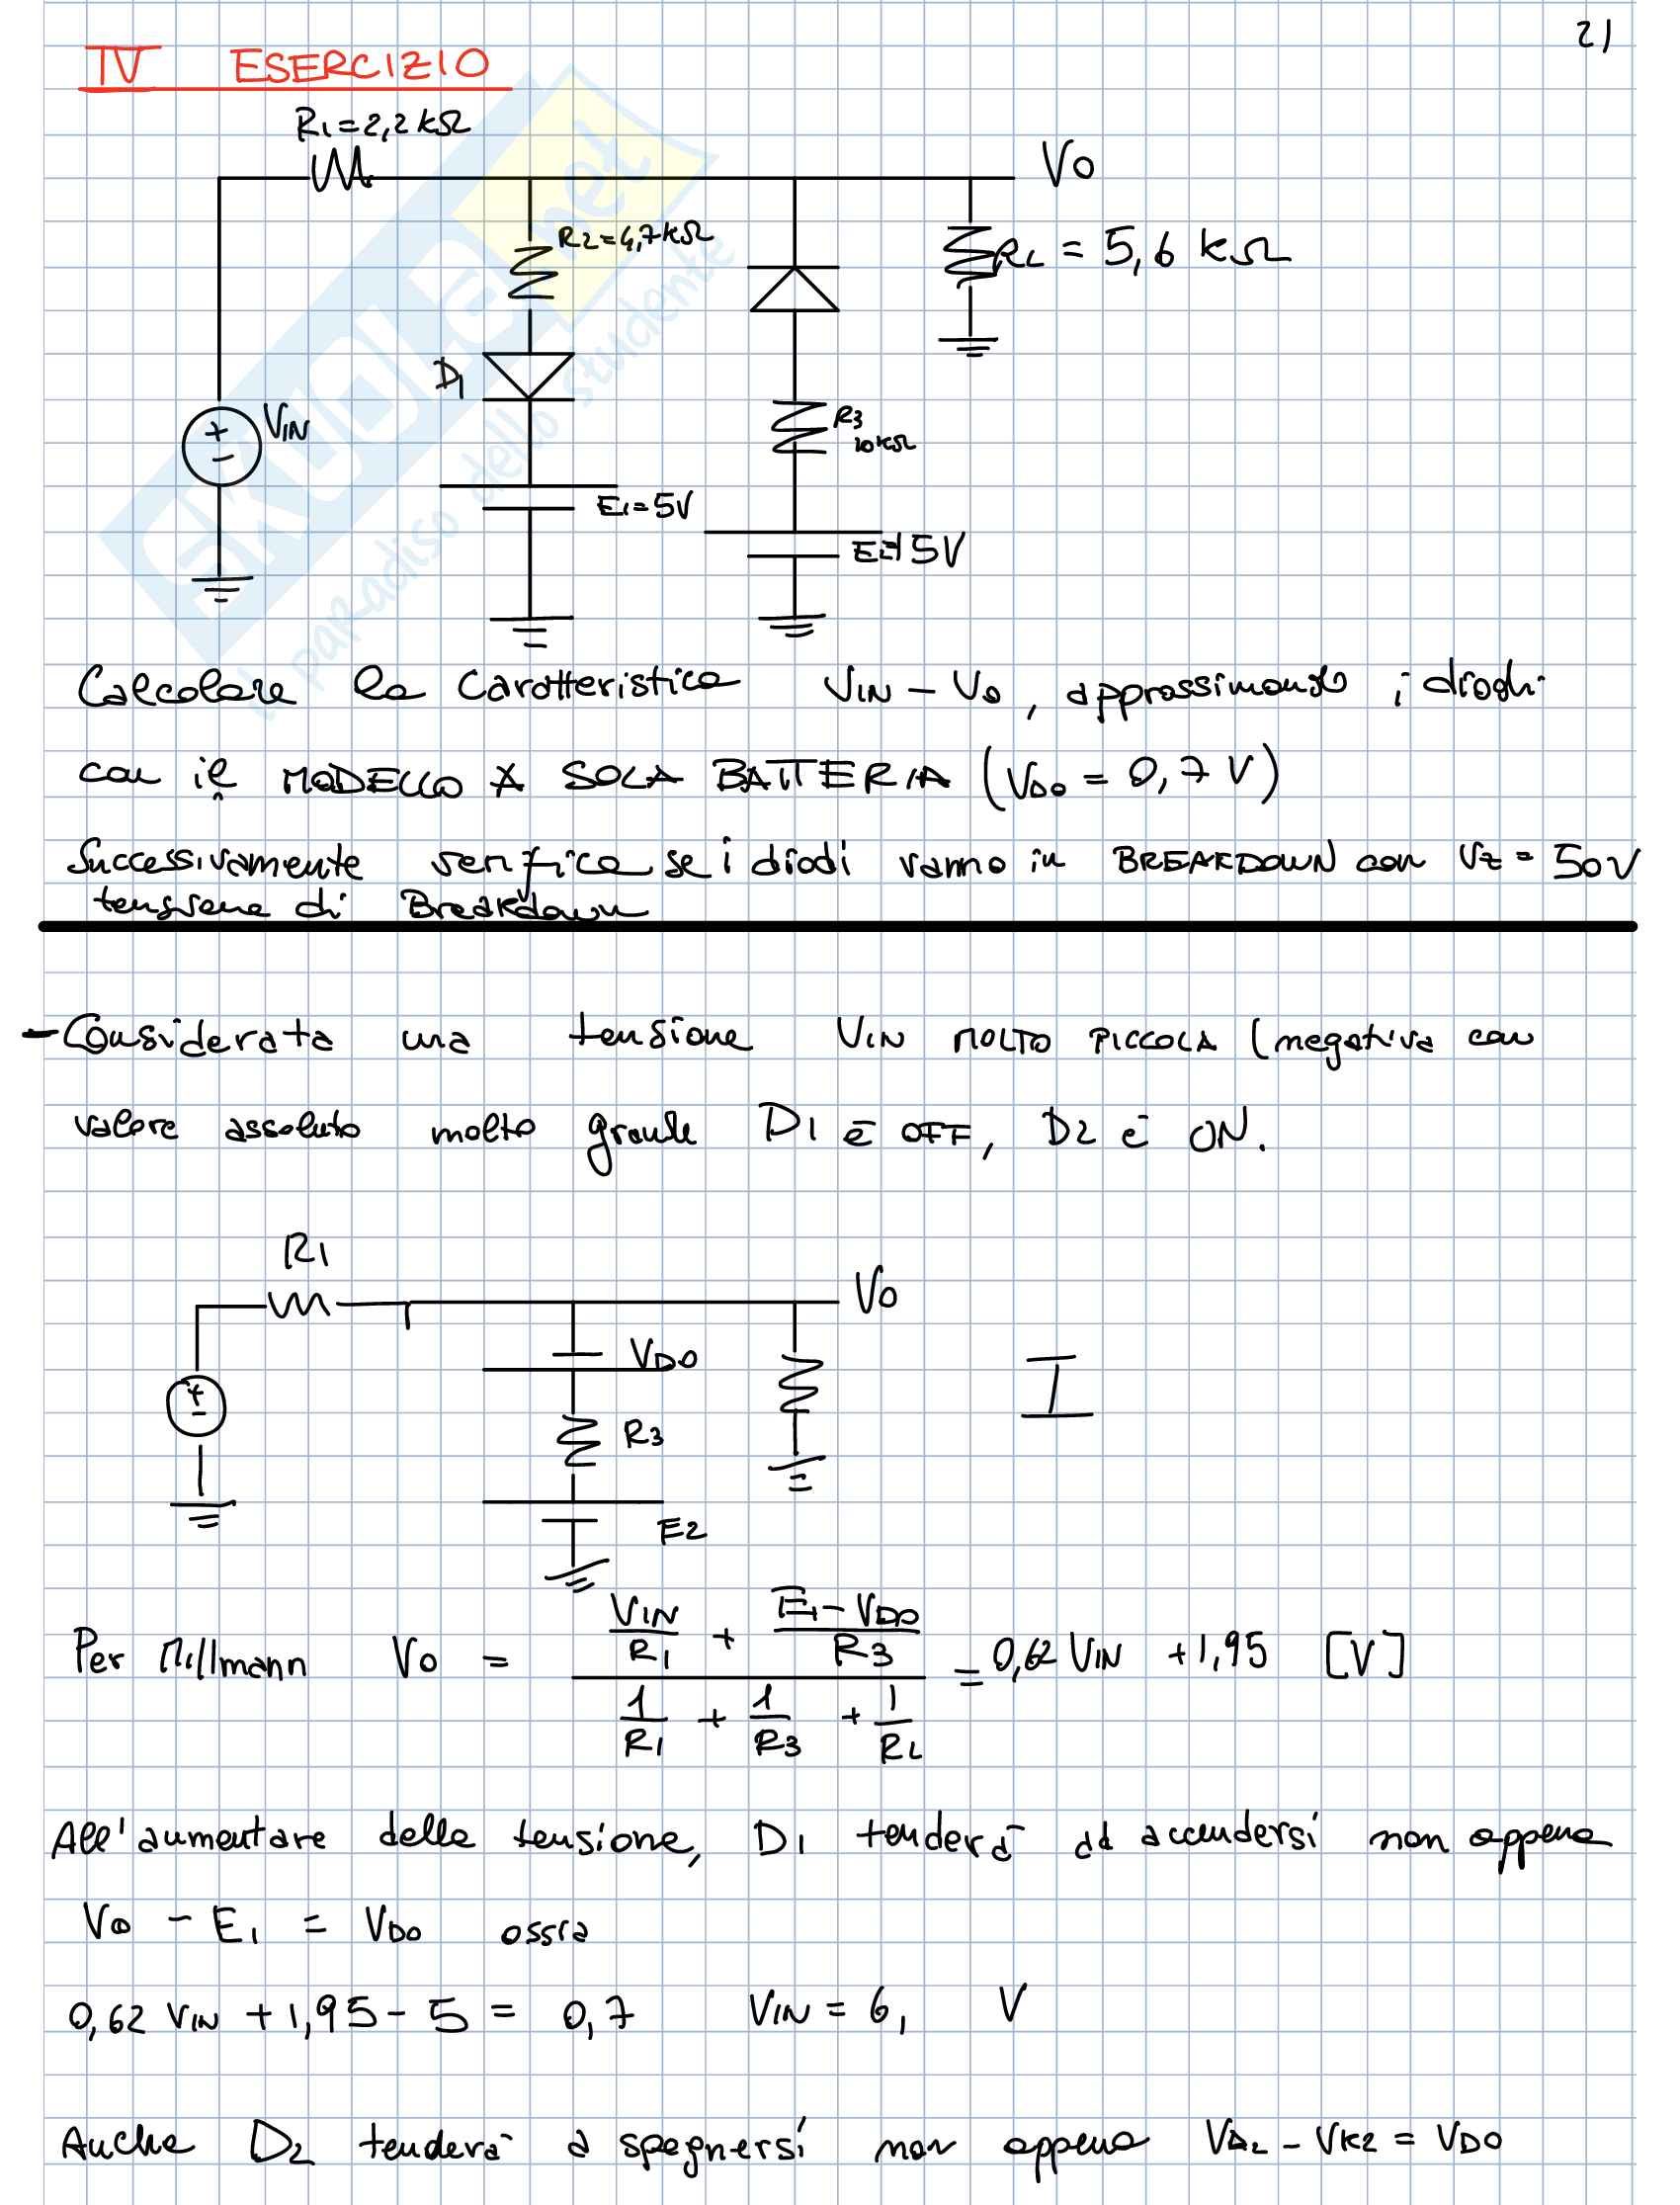 21
IV ESERCIZIO
R1=2,2kΩ
VO
R2=4,7kΩ
RL = 5,6 kΩ
D1
VIN
R3
10kΩ
E1=5V
5V
SKUOLA.net
il paradiso dello studente
Calcolare la caratteristica VIN - VO, approssimando i diodi
con il MODELLO A SOLA BATTERIA (VDO = 0,7 V)
Successivamente verifica se i diodi vanno in BREAKDOWN con VZ = 50V
tensione di Breakdown
- Considerata una tensione VIN MOLTO PICCOLA (negativa con
valore assoluto molto grande D1 è OFF, D2 è ON.
R1
VO
VDO
I
R3
E2
Per Millmann VO = (VIN/R1 + (E1-VDO)/R3) / (1/R1 + 1/R3 + 1/RL) = 0,62 VIN +1,95 [V]
All'aumentare della tensione, D1 tenderà ad accendersi non appena
VO - E1 = VDO ossia
0,62 VIN + 1,95 - 5 = 0,7 VIN = 6, V
Anche D2 tenderà a spegnersi non appena VA2 - VK2 = VDO